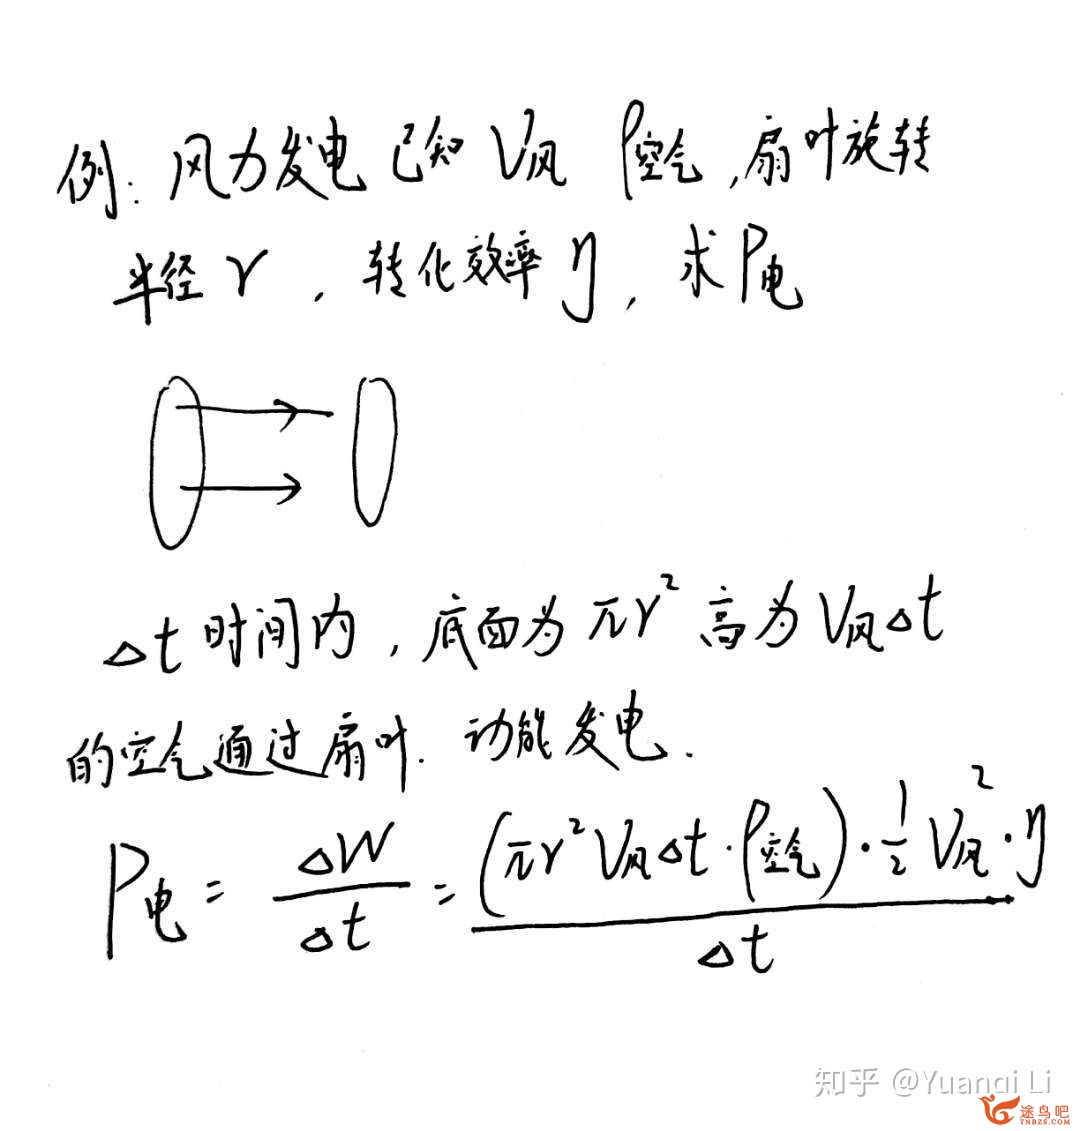 例：风力发电 已知 V风 ρ空气，扇叶旋转
半径 r ，转化效率 η，求 P电
Δt 时间内，底面为 πr² 高为 V风Δt
的空气通过扇叶．动能发电．
P电 = ΔW/Δt = (πr² V风 Δt · ρ空气) · 1/2 V风² · η / Δt
知乎 @Yuanqi Li
途鸟吧
TNBZS.COM